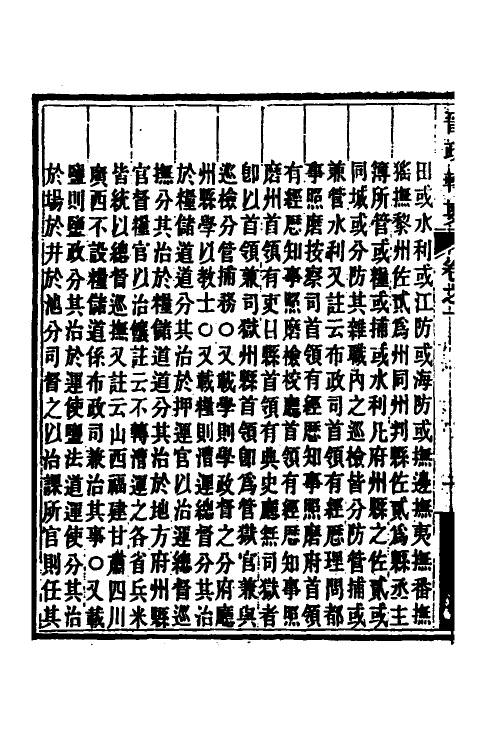 晉政輯要 卷之一
田或水利或江防或海防或撫邊撫夷撫番撫
猺撫黎州佐貳爲州同州判縣佐貳爲縣丞主
簿所管或糧或捕或水利凡府州縣之佐貳或
同城或分防其雜職內之巡檢皆分防管捕或
兼管水利又註云布政司首領有經歷理問都
事照磨按察司首領有經歷知事照磨府首領
有經歷知事照磨檢校廳首領有經歷知事照
磨州首領有吏目縣首領有典史廳無司獄者
卽以首領兼司獄州縣首領卽爲管獄官兼與
巡檢分管捕務○又載學則學政督之分府廳
州縣學以敎士○又載糧則漕運總督分其治
於糧儲道道分其治於押運官以治運總督巡
撫分其治於糧儲道道分其治於地方府州縣
官督糧官以治儲註云不轉漕運之各省兵米
皆統以總督巡撫又註云山西福建甘肅四川
廣西不設糧儲道係布政司兼治其事○又載
鹽則鹽政分其治於運使鹽法道運使分其治
於場於井於池分司督之以治課所官則任其